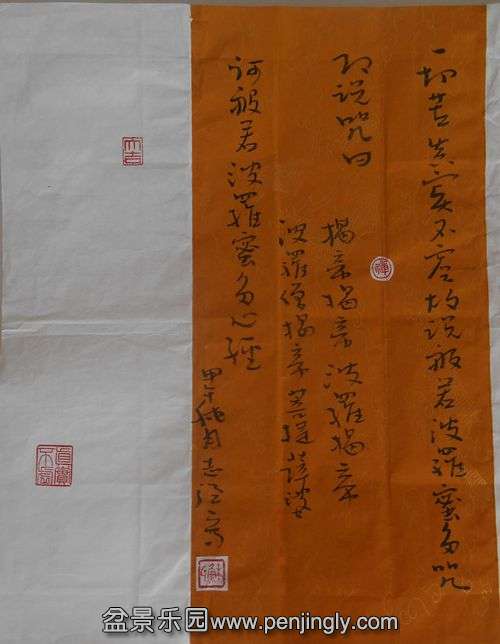 一切苦真实不虚故说般若波羅蜜多咒
即说咒曰 揭帝揭帝波羅揭帝
波羅僧揭帝菩提薩婆
诃般若波羅蜜多心經
甲午秋月志写
禅
真實不虚
盆景乐园www.penjingly.com